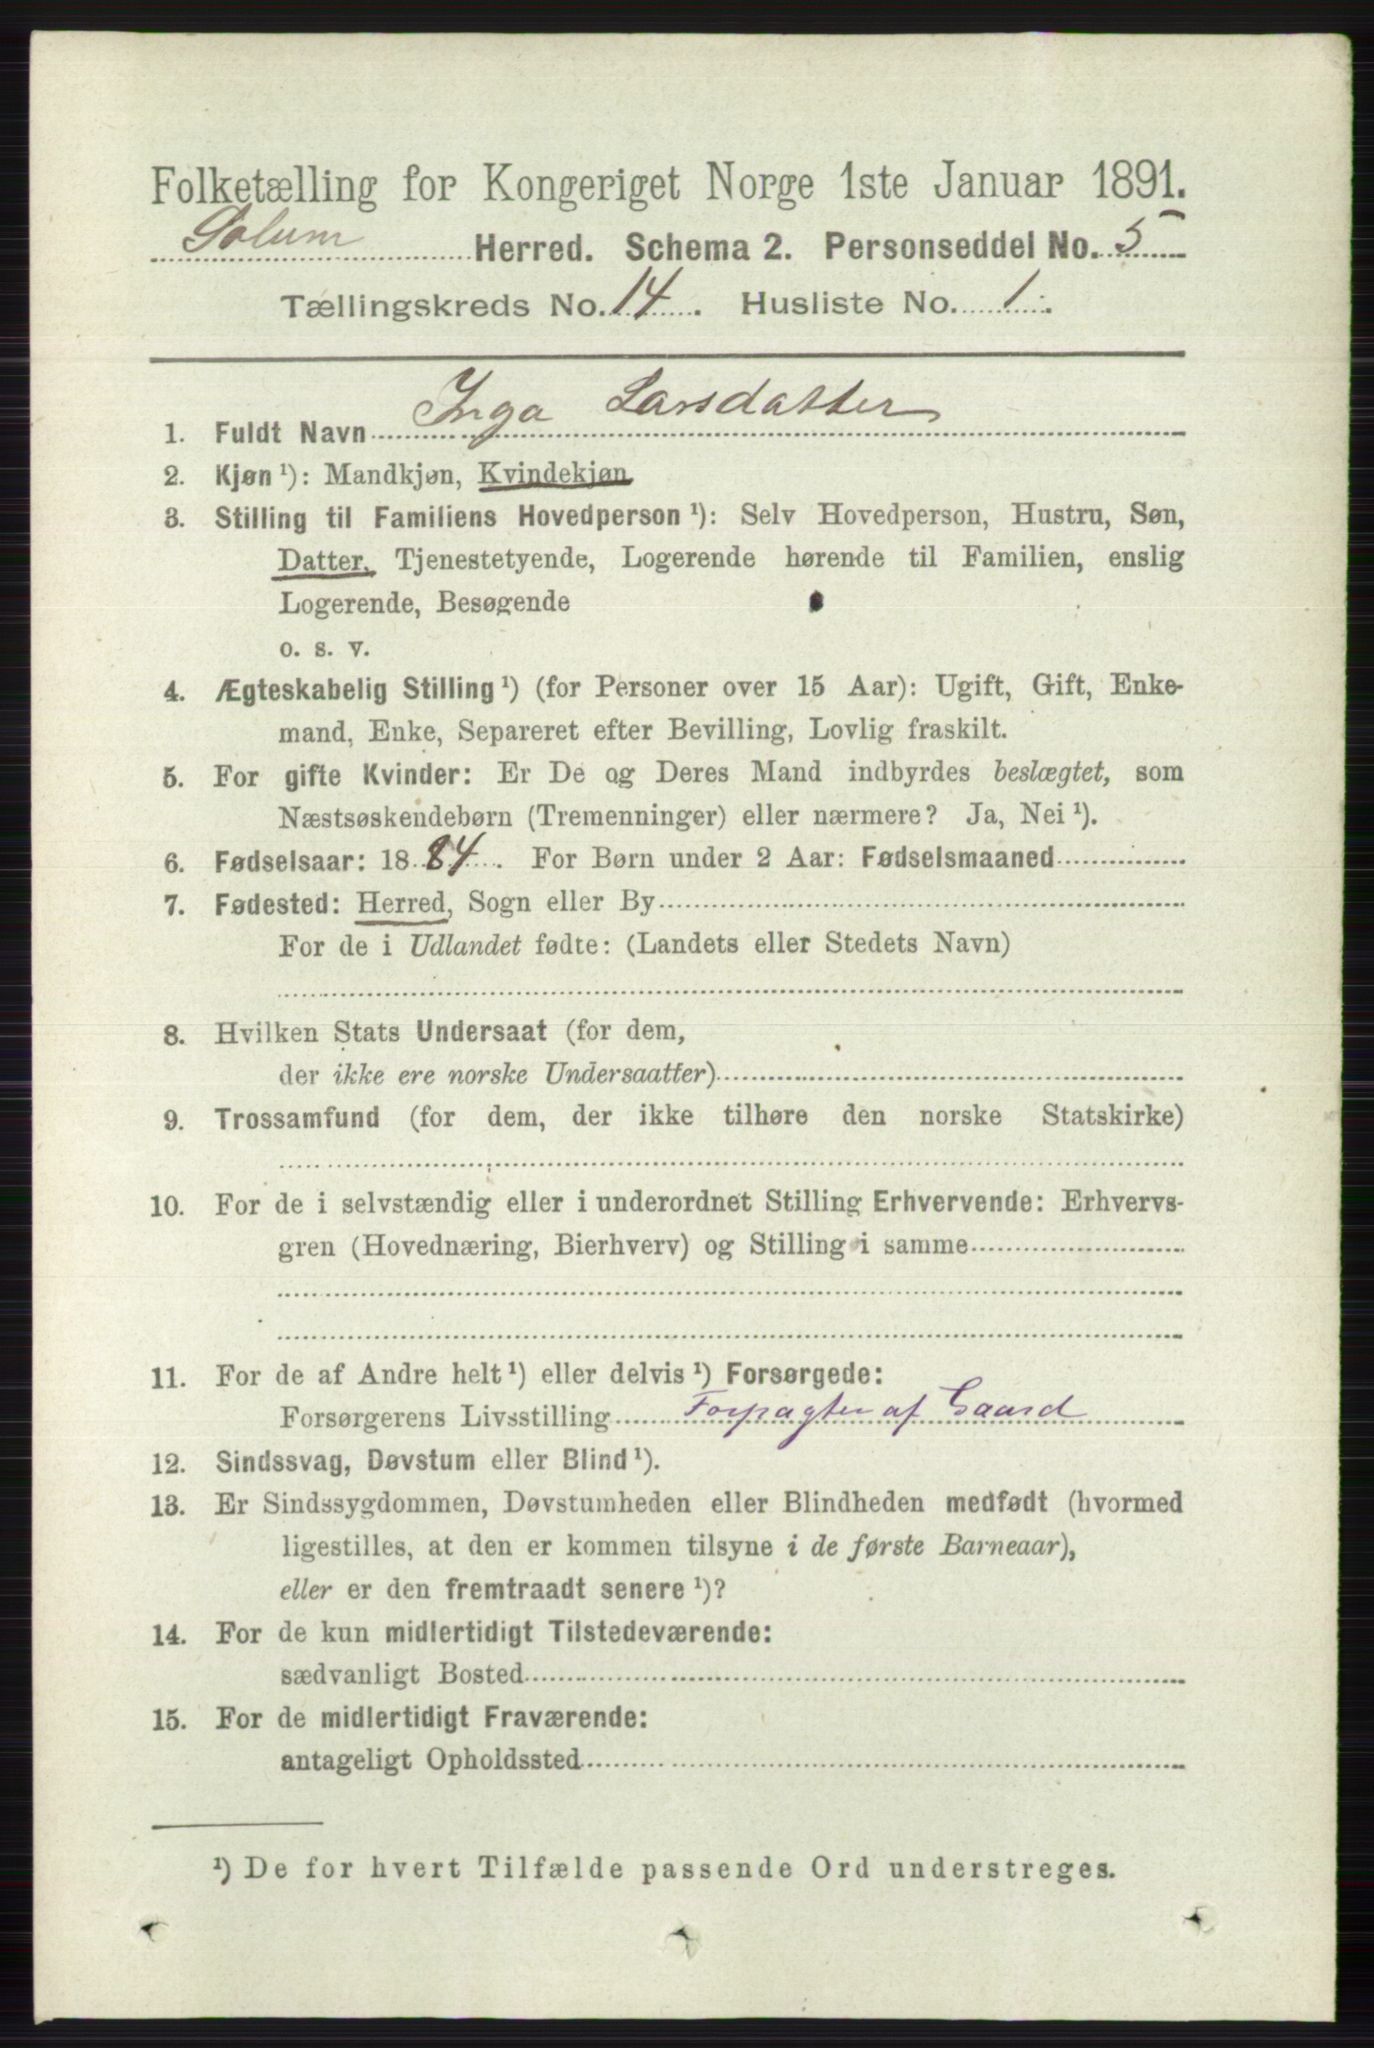 Folketælling for Kongeriget Norge 1ste Januar 1891.
Solum Herred. Schema 2. Personseddel No. 5
Tællingskreds No. 14. Husliste No. 1.
1. Fuldt Navn Inga Larsdatter
2. Kjøn ¹): Mandkjøn, Kvindekjøn
3. Stilling til Familiens Hovedperson ¹): Selv Hovedperson, Hustru, Søn,
Datter, Tjenestetyende, Logerende hørende til Familien, enslig
Logerende, Besøgende
o. s. v.
4. Ægteskabelig Stilling ¹) (for Personer over 15 Aar): Ugift, Gift, Enke-
mand, Enke, Separeret efter Bevilling, Lovlig fraskilt.
5. For gifte Kvinder: Er De og Deres Mand indbyrdes beslægtet, som
Næstsøskendebørn (Tremenninger) eller nærmere? Ja, Nei ¹).
6. Fødselsaar: 1884. For Børn under 2 Aar: Fødselsmaaned
7. Fødested: Herred, Sogn eller By
For de i Udlandet fødte: (Landets eller Stedets Navn)
8. Hvilken Stats Undersaat (for dem,
der ikke ere norske Undersaatter)
9. Trossamfund (for dem, der ikke tilhøre den norske Statskirke)
10. For de i selvstændig eller i underordnet Stilling Erhvervende: Erhvervs-
gren (Hovednæring, Bierhverv) og Stilling i samme
11. For de af Andre helt ¹) eller delvis ¹) Forsørgede:
Forsørgerens Livsstilling Forpagter af Gaard
12. Sindssvag, Døvstum eller Blind ¹).
13. Er Sindssygdommen, Døvstumheden eller Blindheden medfødt (hvormed
ligestilles, at den er kommen tilsyne i de første Barneaar),
eller er den fremtraadt senere ¹)?
14. For de kun midlertidigt Tilstedeværende:
sædvanligt Bosted
15. For de midlertidigt Fraværende:
antageligt Opholdssted
¹) De for hvert Tilfælde passende Ord understreges.